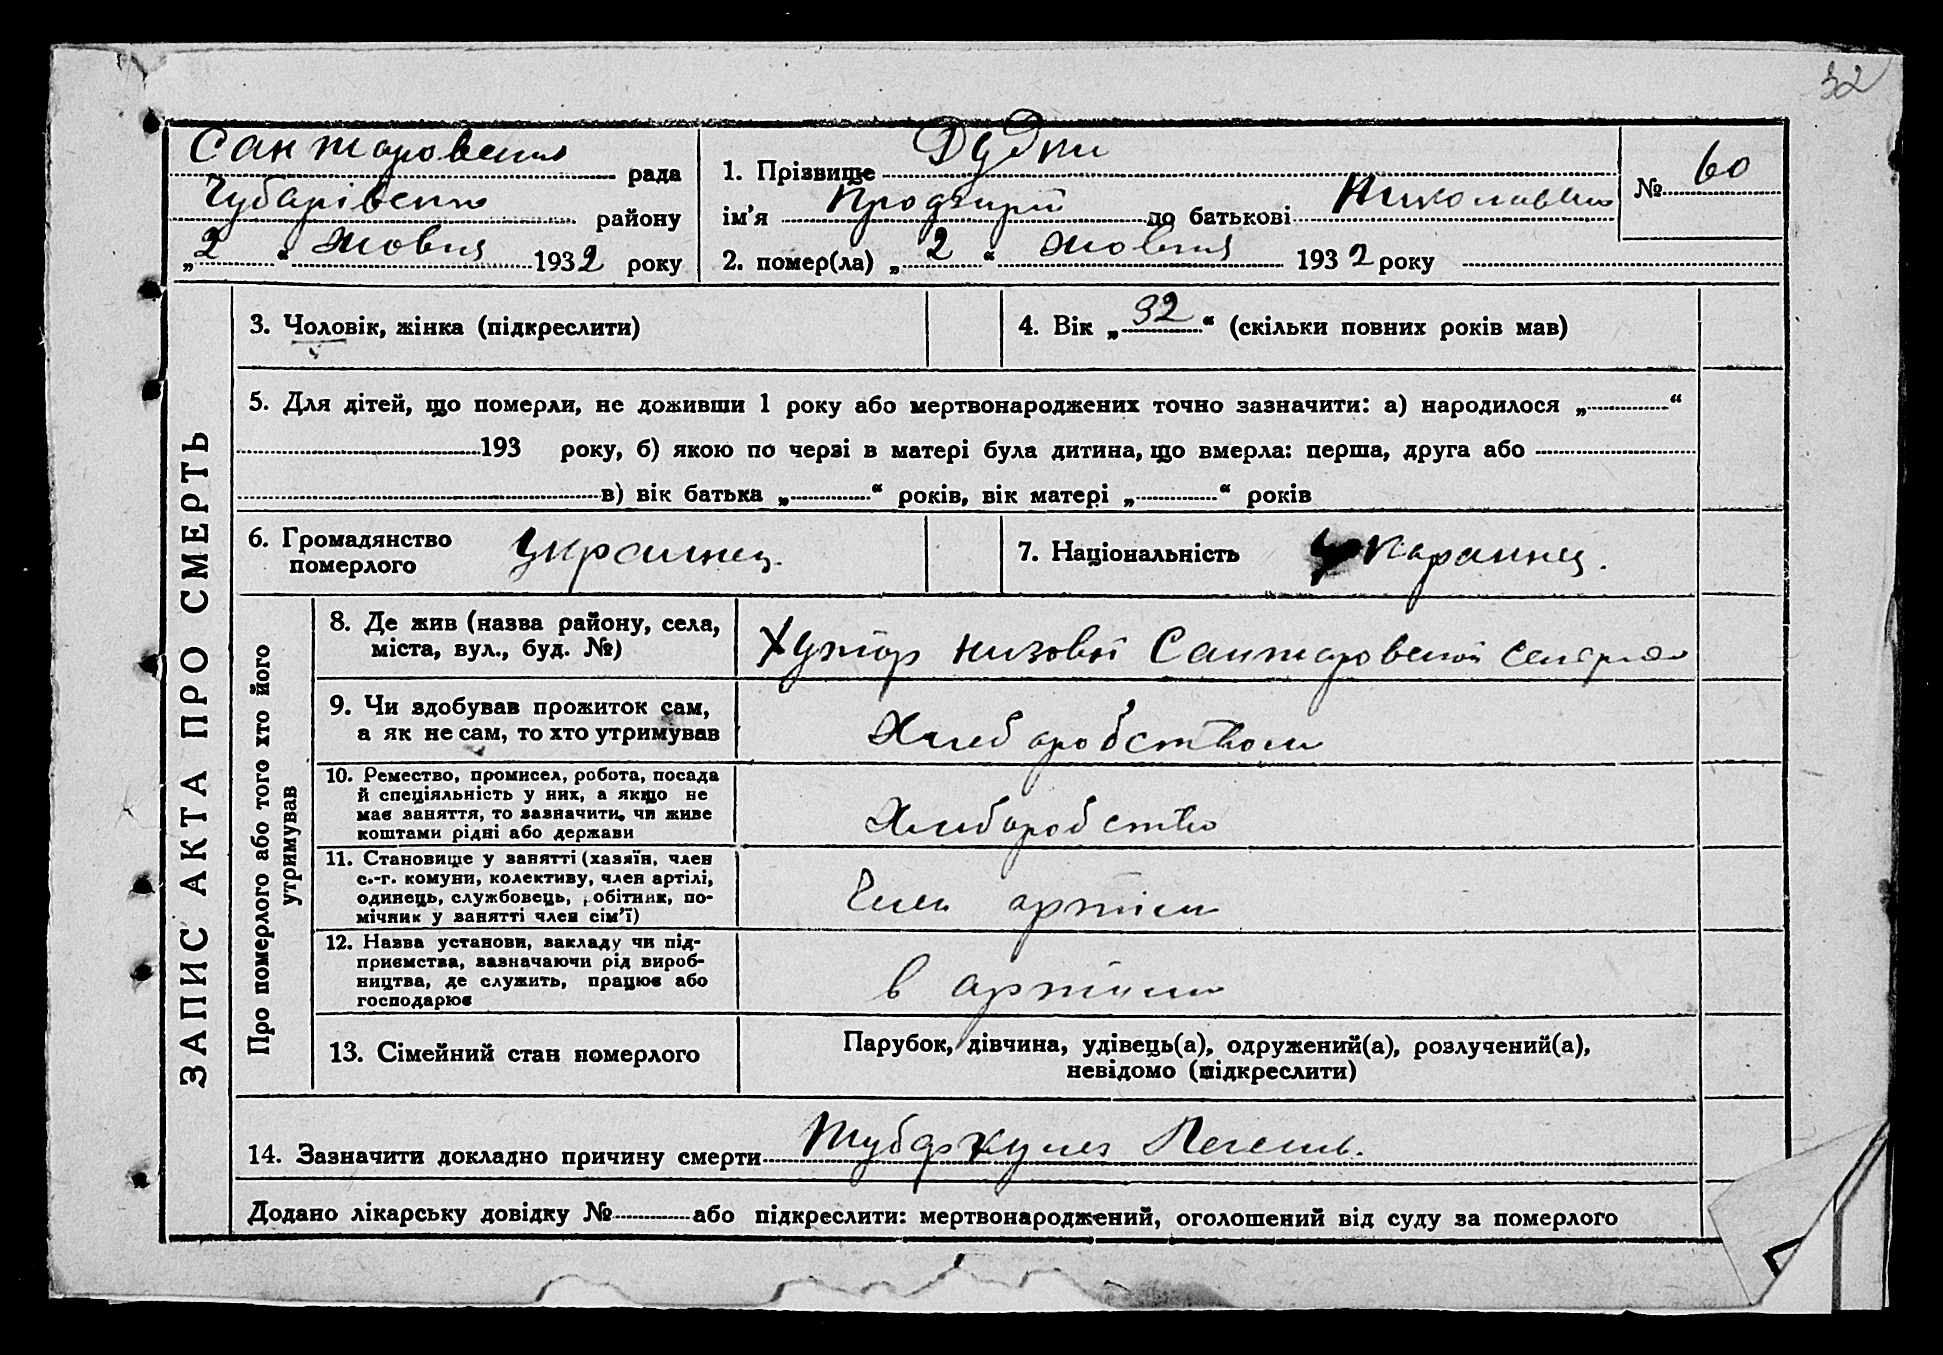 32
Сантаровский
рада
Чубарівский
району
„2“ жовня 1932 року
1. Прізвище
ім’я
по батькові
2. помер(ла) „2“ жовня 1932 року
№ 60
ЗАПИС АКТА ПРО СМЕРТЬ
3. Чоловік, жінка (підкреслити)
4. Вік „32“ (скільки повних років мав)
5. Для дітей, що померли, не доживши 1 року або мертвонароджених точно зазначити: а) народилося „ “
193 року, б) якою по черзі в матері була дитина, що вмерла: перша, друга або
в) вік батька „ “ років, вік матері „ “ років
6. Громадянство
померлого
украинец.
7. Національність украинец.
Про померлого або того хто його
утримував
8. Де жив (назва району, села,
міста, вул., буд. №)
Хутор низовой Сантаровской
9. Чи здобував прожиток сам,
а як не сам, то хто утримував
Хлеборобством
10. Ремество, промисел, робота, посада
й спеціяльність у них, а якщо не
має заняття, то зазначити, чи живе
коштами рідні або держави
Хлеборобство
11. Становище у занятті (хазяїн, член
с.-г. комуни, колективу, член артілі,
одинець, службовець, робітник, по-
мічник у занятті член сім’ї)
Член артіли
12. Назва установи, закладу чи під-
приємства, зазначаючи рід вироб-
ництва, де служить, працює або
господарює
в артіли
13. Сімейний стан померлого
Парубок, дівчина, удівець(а), одружений(а), розлучений(а),
невідомо (підкреслити)
14. Зазначити докладно причину смерти Туберкулез Легень.
Додано лікарську довідку № або підкреслити: мертвонароджений, оголошений від суду за померлого